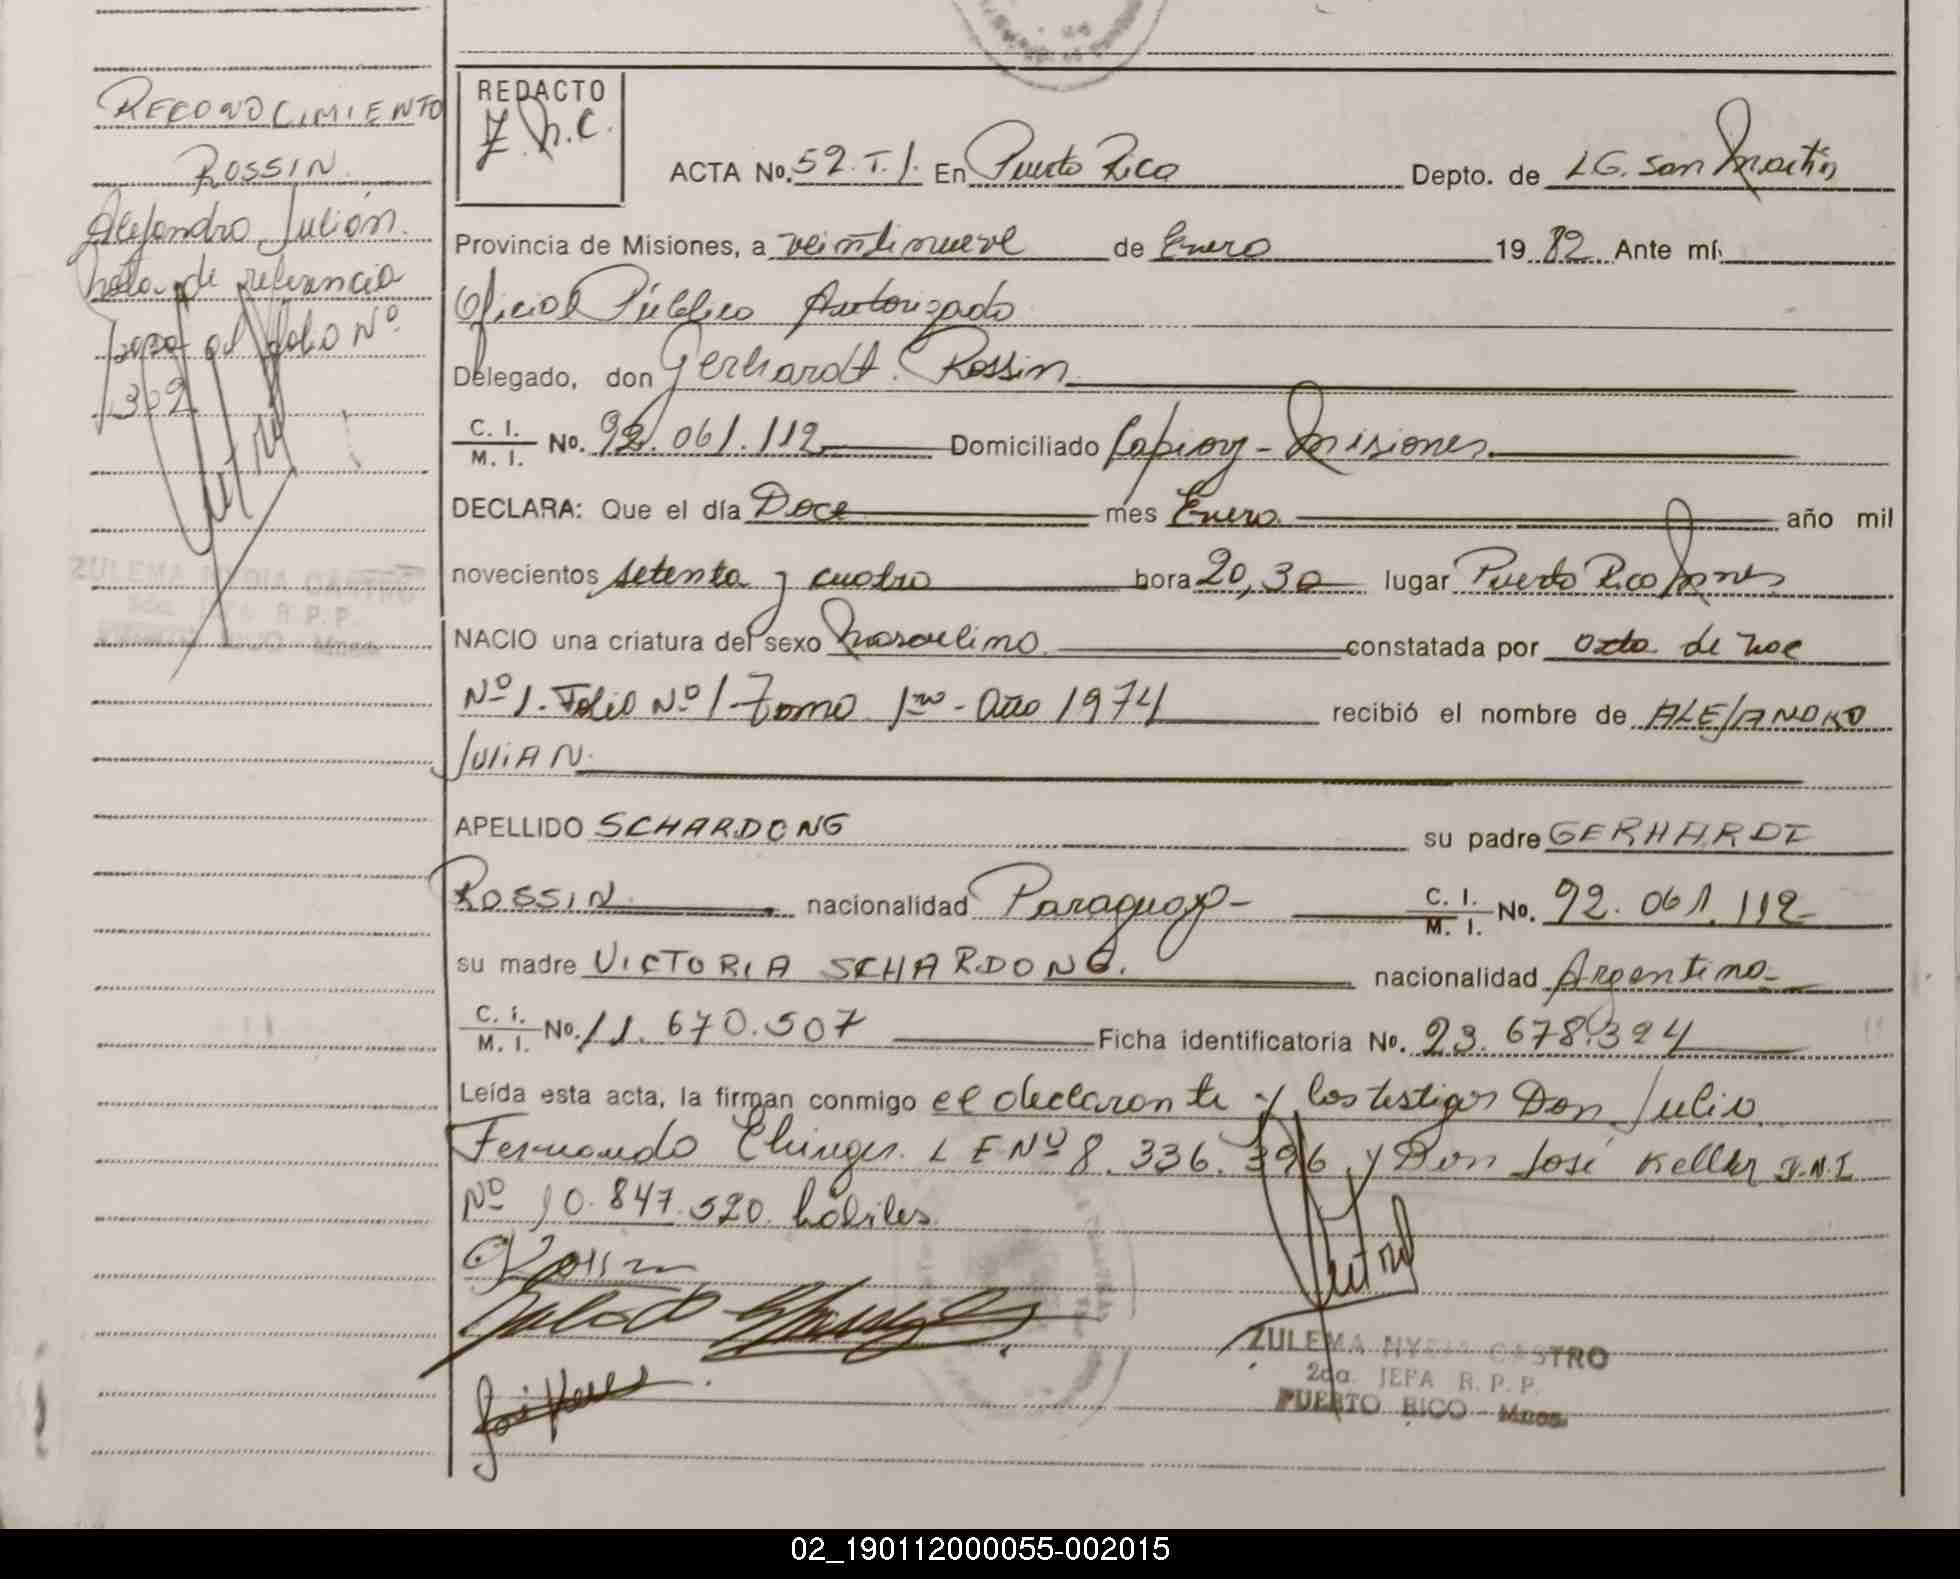 RECONOCIMIENTO
ROSSIN
Alejandro Julián.
Nota de referencia
al folio Nº
302
ZULEMA MYRIA CASTRO
2da. JEFA R. P. P.
PUERTO RICO - Mnes.
REDACTO
Z.M.C.
ACTA No. 52.T.I. En Puerto Rico Depto. de LG. San Martín
Provincia de Misiones, a veintinueve de Enero 1982 Ante mí,
Oficial Público Autorizado
Delegado, don Gerhardt Rossin
C. I. / M. I. No. 92.061.112 Domiciliado Capiovy - Misiones
DECLARA: Que el día Doce mes Enero año mil
novecientos setenta y cuatro hora 20,30 lugar Puerto Rico Mnes
NACIO una criatura del sexo Masculino constatada por acta de nac
Nº 1. Folio Nº 1 - Tomo 1ro - Año 1974 recibió el nombre de ALEJANDRO
JULIAN.
APELLIDO SCHARDONG su padre GERHARDT
ROSSIN nacionalidad Paraguayo - C. I. / M. I. No. 92.061.112-
su madre VICTORIA SCHARDONG. nacionalidad Argentina-
C. I. / M. I. No. 11.670.507 Ficha identificatoria No. 23.678.394
Leída esta acta, la firman conmigo el declarante y los testigos Don Julio
Fernando Ehinger L E Nº 8.336.396 y Don José Keller D.N.I
Nº 10.847.520 hábiles
Rossin
José Keller
ZULEMA MYRIA CASTRO
2da. JEFA R. P. P.
PUERTO RICO - Mnes.
02_190112000055-002015